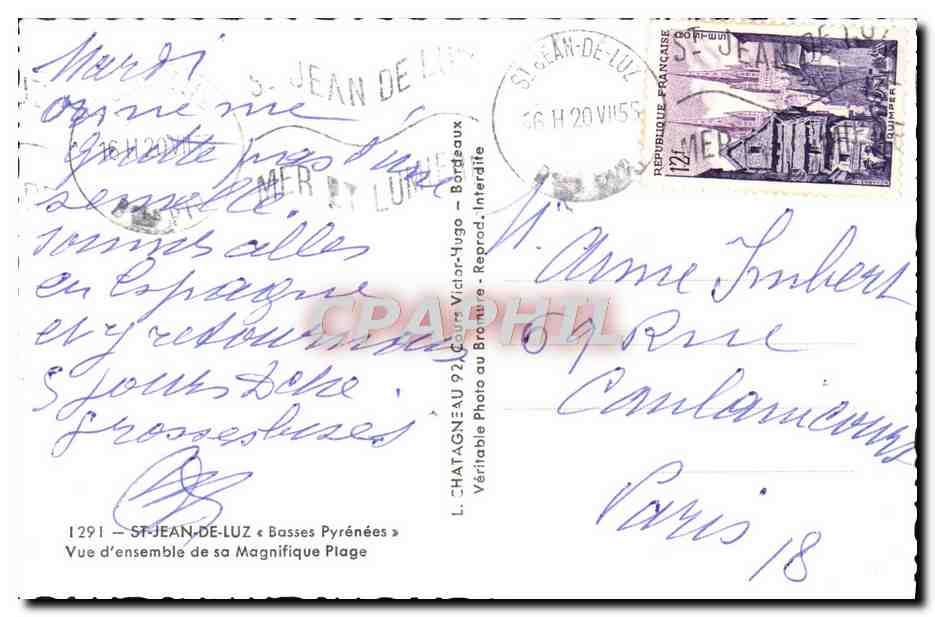 Mardi
ne me
quitte pas d'une
semelle.
sommes allés
en Espagne
et y retournons
5 jours
grosses bises
1291 — ST-JEAN-DE-LUZ « Basses Pyrénées »
Vue d'ensemble de sa Magnifique Plage
L. CHATAGNEAU 92, Cours Victor-Hugo — Bordeaux
Véritable Photo au Bromure - Reprod. Interdite
CPAPHIL
ST-JEAN DE LUZ
MER ET
16 H 20 VII
ST-JEAN-DE-LUZ
16 H 20 VII 55
ST-JEAN DE LUZ
MER
RÉPUBLIQUE FRANÇAISE
POSTES
12f
QUIMPER
Anne Imbert
69 Rue
Caulaincourt
Paris
18